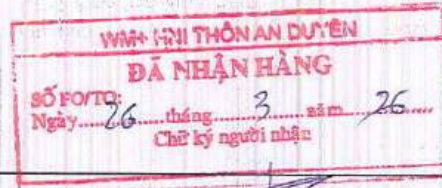 WM+ HNI THÔN AN DUYÊN
ĐÃ NHẬN HÀNG
SỐ FO/TO:
Ngày......26......tháng......3......năm......26......
Chữ ký người nhận